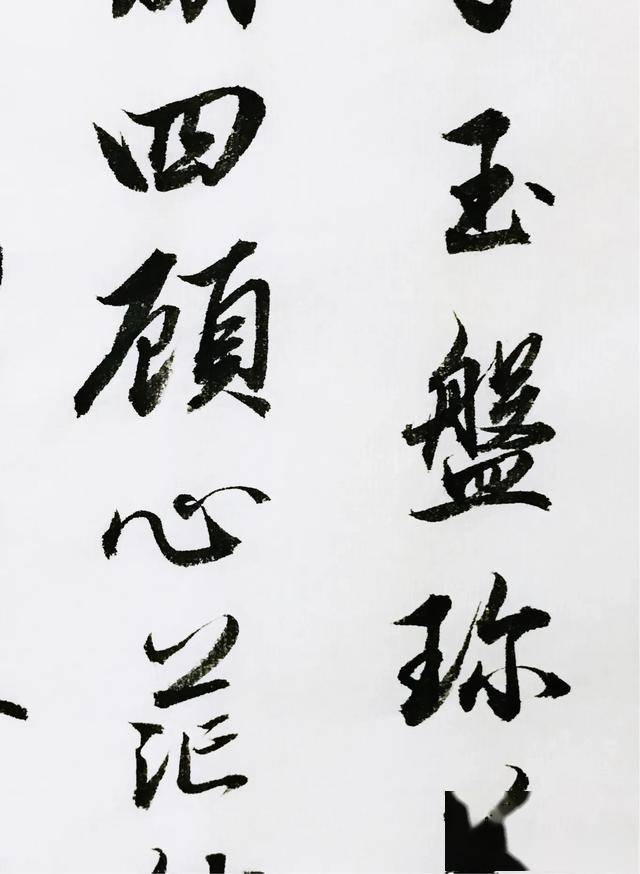 玉盤珎
四顧心茫